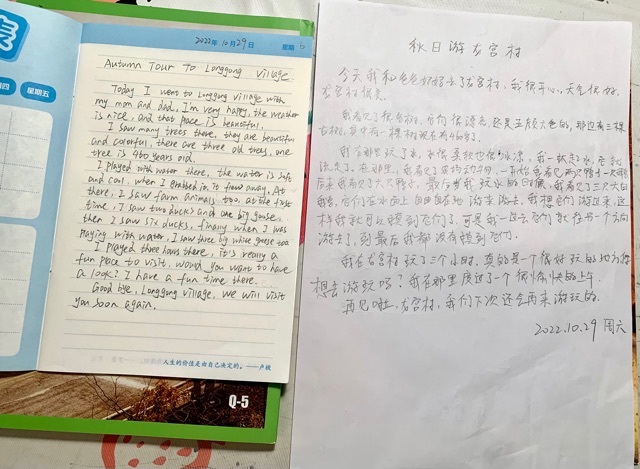 表
四
星期五
2022年10月29日 星期 6
Autumn Tour To Longgong Village
Today I went to Longgong Village with
my mom and dad, I'm very happy, the weather
is nice, and that place is beautiful.
I saw many trees there, they are beautiful
and colorful, there are three old trees, one
tree is 460 years old.
I played with water there, the water is soft
and cool, when I grabbed in it flowed away. At
there, I saw farm animals too, at the first
time, I saw two ducks and one big goose,
then I saw six ducks, finally when I was
playing with water, I saw three big white geese too
I played three hours there, it's really a
fun place to visit, would you want to have
a look? I have a fun time there.
Good bye, Longgong village, we will visit
you soon again.
人生的价值是由自己决定的。——卢梭
Q-5
秋日游龙宫村
今天我和爸爸妈妈去了龙宫村，我很开心，天气很好，
龙宫村很美。
我看见了很多树，它们很漂亮，还是五颜六色的，那边有三棵
古树，其中有一棵树现在有460岁了。
我在那里玩了水，水很柔软也很冰凉，我一抓起水，它就
流走了。在那里，我看见了农场动物，一开始我看见两只鸭子一只大鹅
后来我看见了六只鸭子，最后当我玩水的时候，我看见了三只大白
鹅，它们在水面上自由自在地游来游去。我想它们游过来，这
样我就可以摸到它们了，可是我一过去它们就往另一个方向
游去了，到最后我都没有摸到它们。
我在龙宫村玩了三个小时，真的是一个很好玩的地方，你
想去游玩吗？我在那里度过了一个很愉快的上午。
再见啦，龙宫村，我们下次还会再来游玩的。
2022.10.29 周六